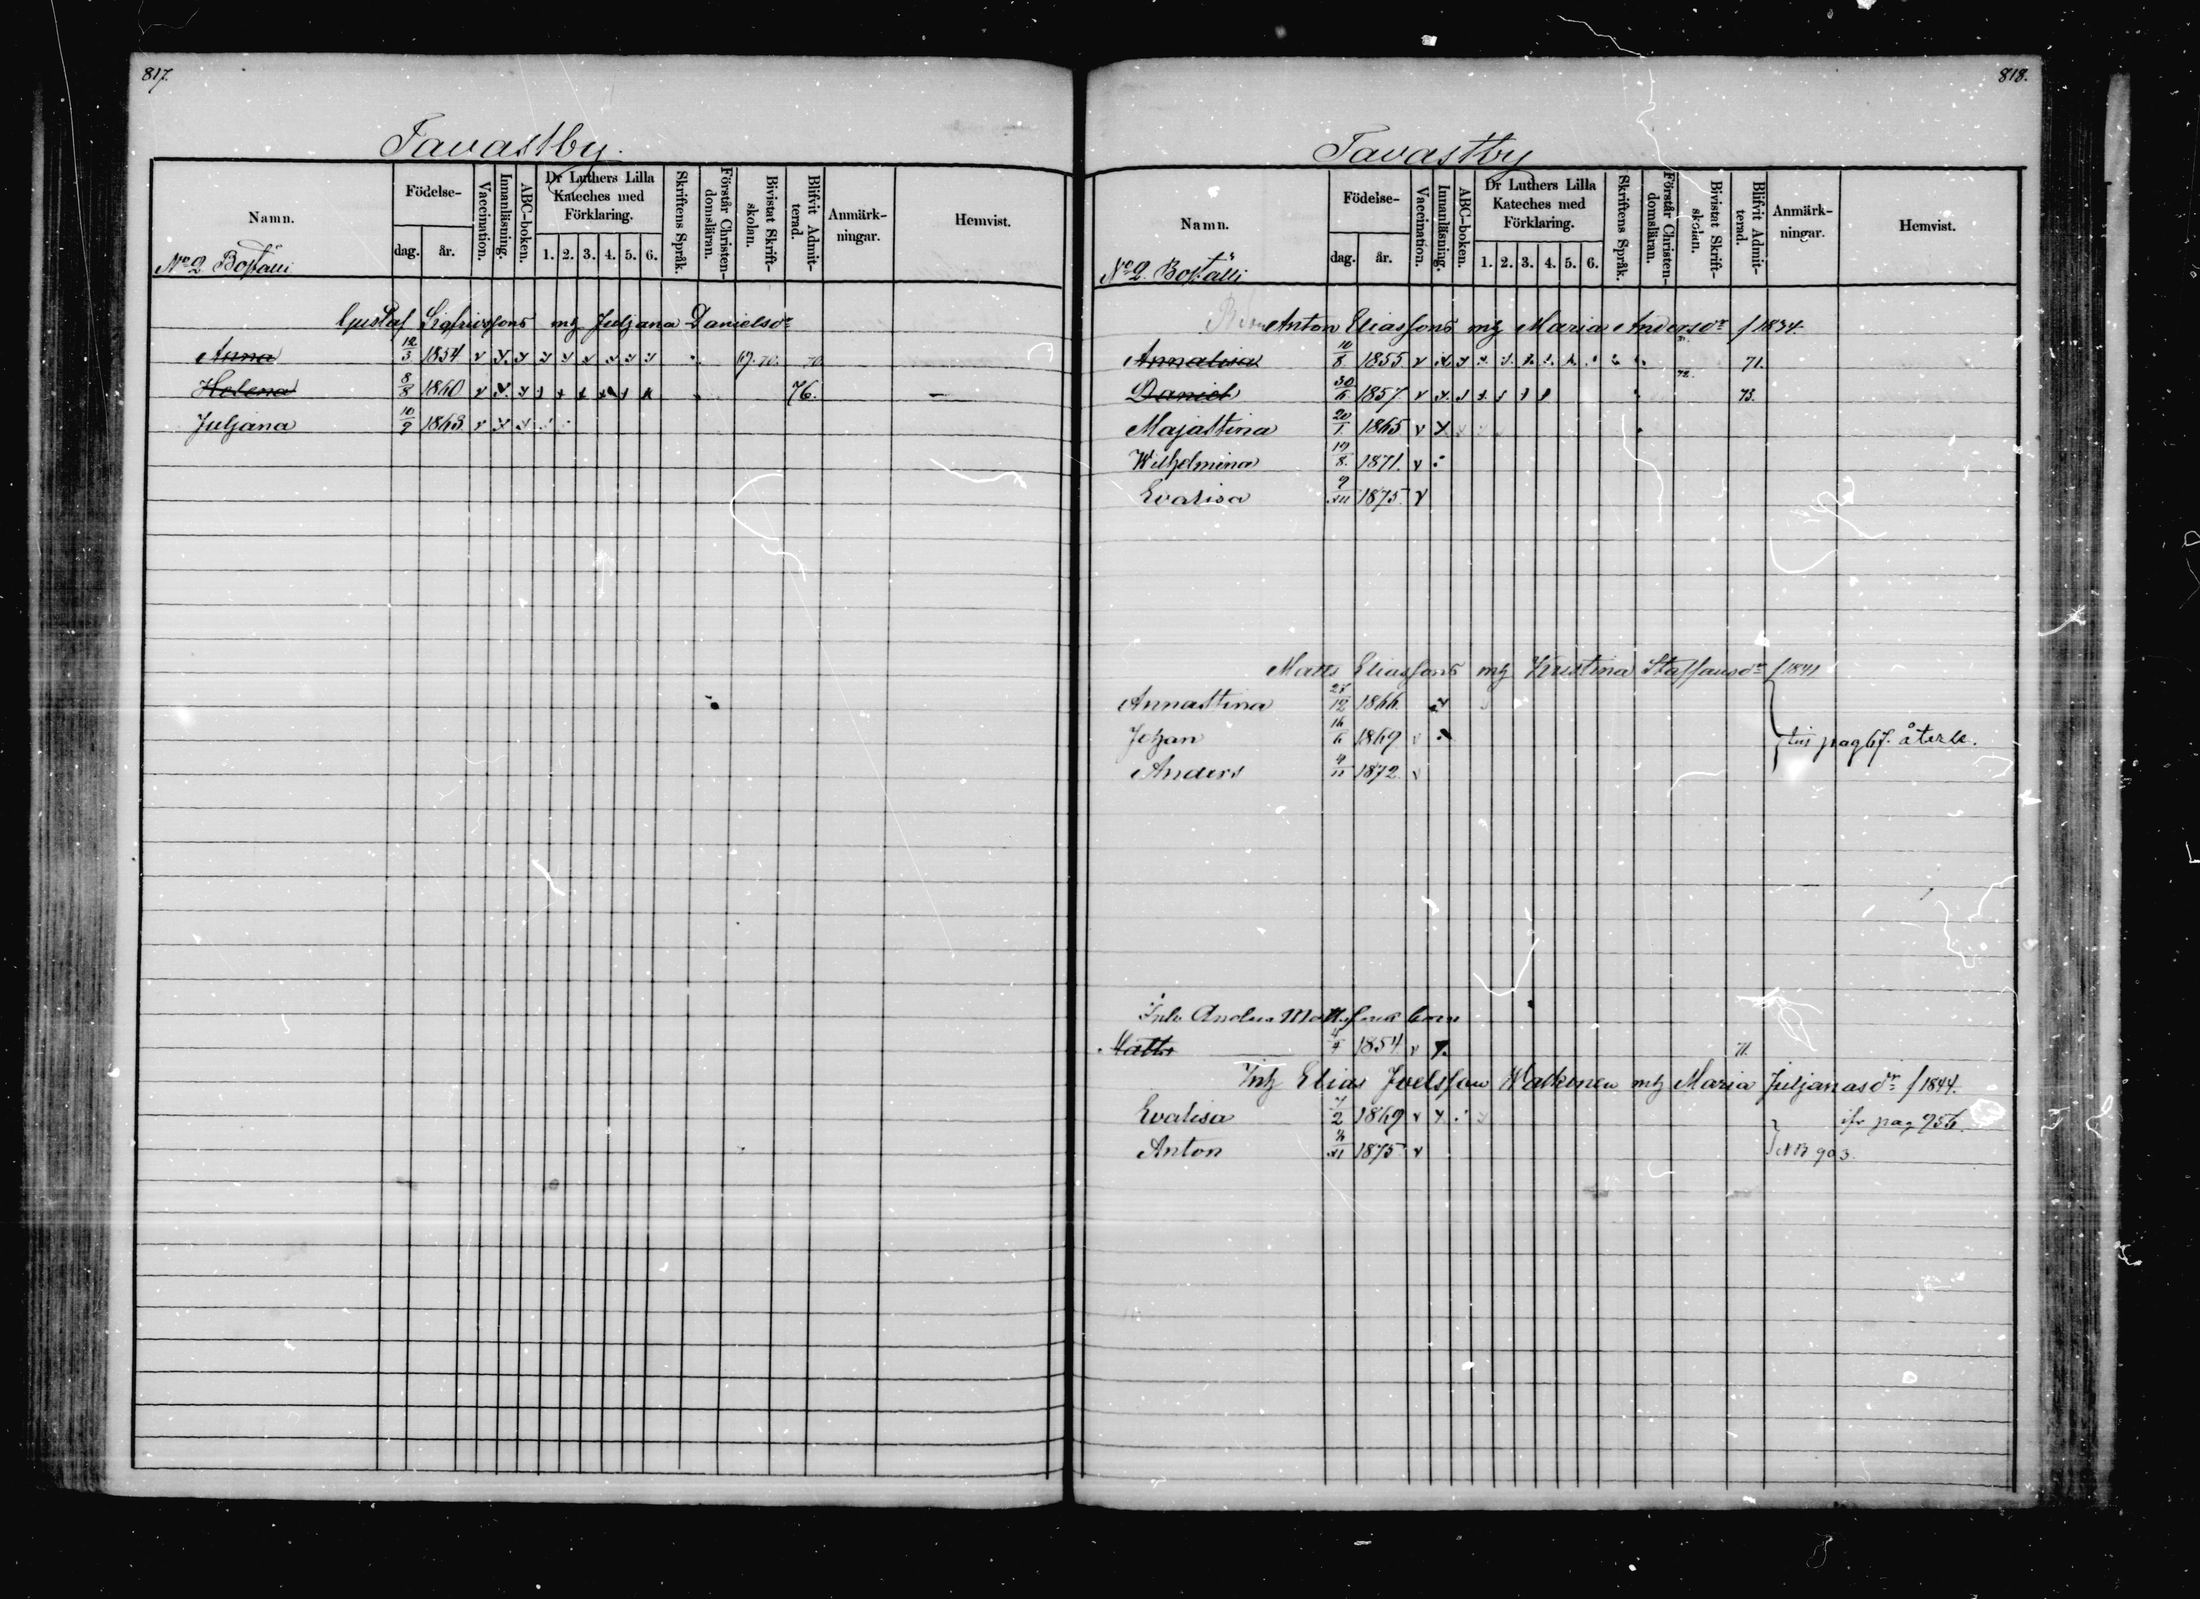 817.
Tavastby.
Namn.
Födelse-
dag. år.
Vaccination.
Innanläsning.
ABC-boken.
Dr Luthers Lilla Kateches med Förklaring.
1. 2. 3. 4. 5. 6.
Skriftens Språk.
Förstår Christendomsläran.
Bivistat Skriftskolan.
Blifvit Admitterad.
Anmärkningar.
Hemvist.
No 2 Boställi
Gustaf Sigfridssons mh Juljana Danielsdr
Anna 12/3 1854 70.
Helena 8/8 1860 76.
Juljana 10/9 1863
818.
Tavastby
Namn.
Födelse-
dag. år.
Vaccination.
Innanläsning.
ABC-boken.
Dr Luthers Lilla Kateches med Förklaring.
1. 2. 3. 4. 5. 6.
Skriftens Språk.
Förstår Christendomsläran.
Bivistat Skriftskolan.
Blifvit Admitterad.
Anmärkningar.
Hemvist.
No 2. Boställi
Anton Eliassons mh Maria Andersdr f 1834.
Annalisa 10/8 1855 71.
Daniel 30/6 1857 72. 73.
Majastina 20/1 1865
Wilhelmina 19/8 1871
Evalisa 9/XII 1875
Matts Eliassons mh Kristina Staffansdr f 1841
Annastina 27/12 1866
Johan 16/6 1869 pag 67. återk.
Anders 4/11 1872
Inh. Anders Mattssons barn
Matts 1854 71.
Inh Elias Joelsson Watkinen mh Maria Juljanasdr f 1844.
Evalisa 7/2 1869 pag 956.
Anton 1875 903.